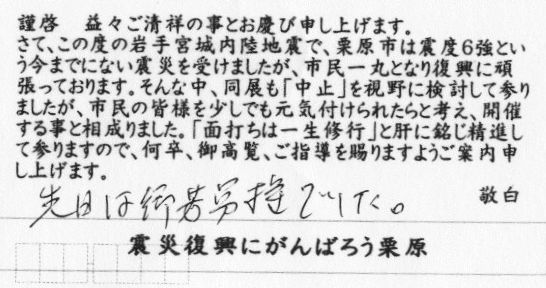 謹啓　益々ご清祥の事とお慶び申し上げます。
さて、この度の岩手宮城内陸地震で、栗原市は震度6強とい
う今までにない震災を受けましたが、市民一丸となり復興に頑
張っております。そんな中、同展も「中止」を視野に検討して参り
ましたが、市民の皆様を少しでも元気付けられたらと考え、開催
する事と相成りました。「面打ちは一生修行」と肝に銘じ精進し
て参りますので、何卒、御高覧、ご指導を賜りますようご案内申
し上げます。
敬白
先日は御苦労様でした。
震災復興にがんばろう栗原